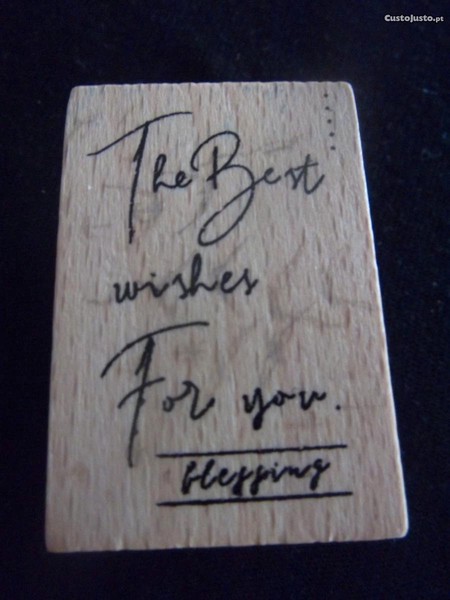 CustoJusto.pt
The Best
wishes
For you.
blessing